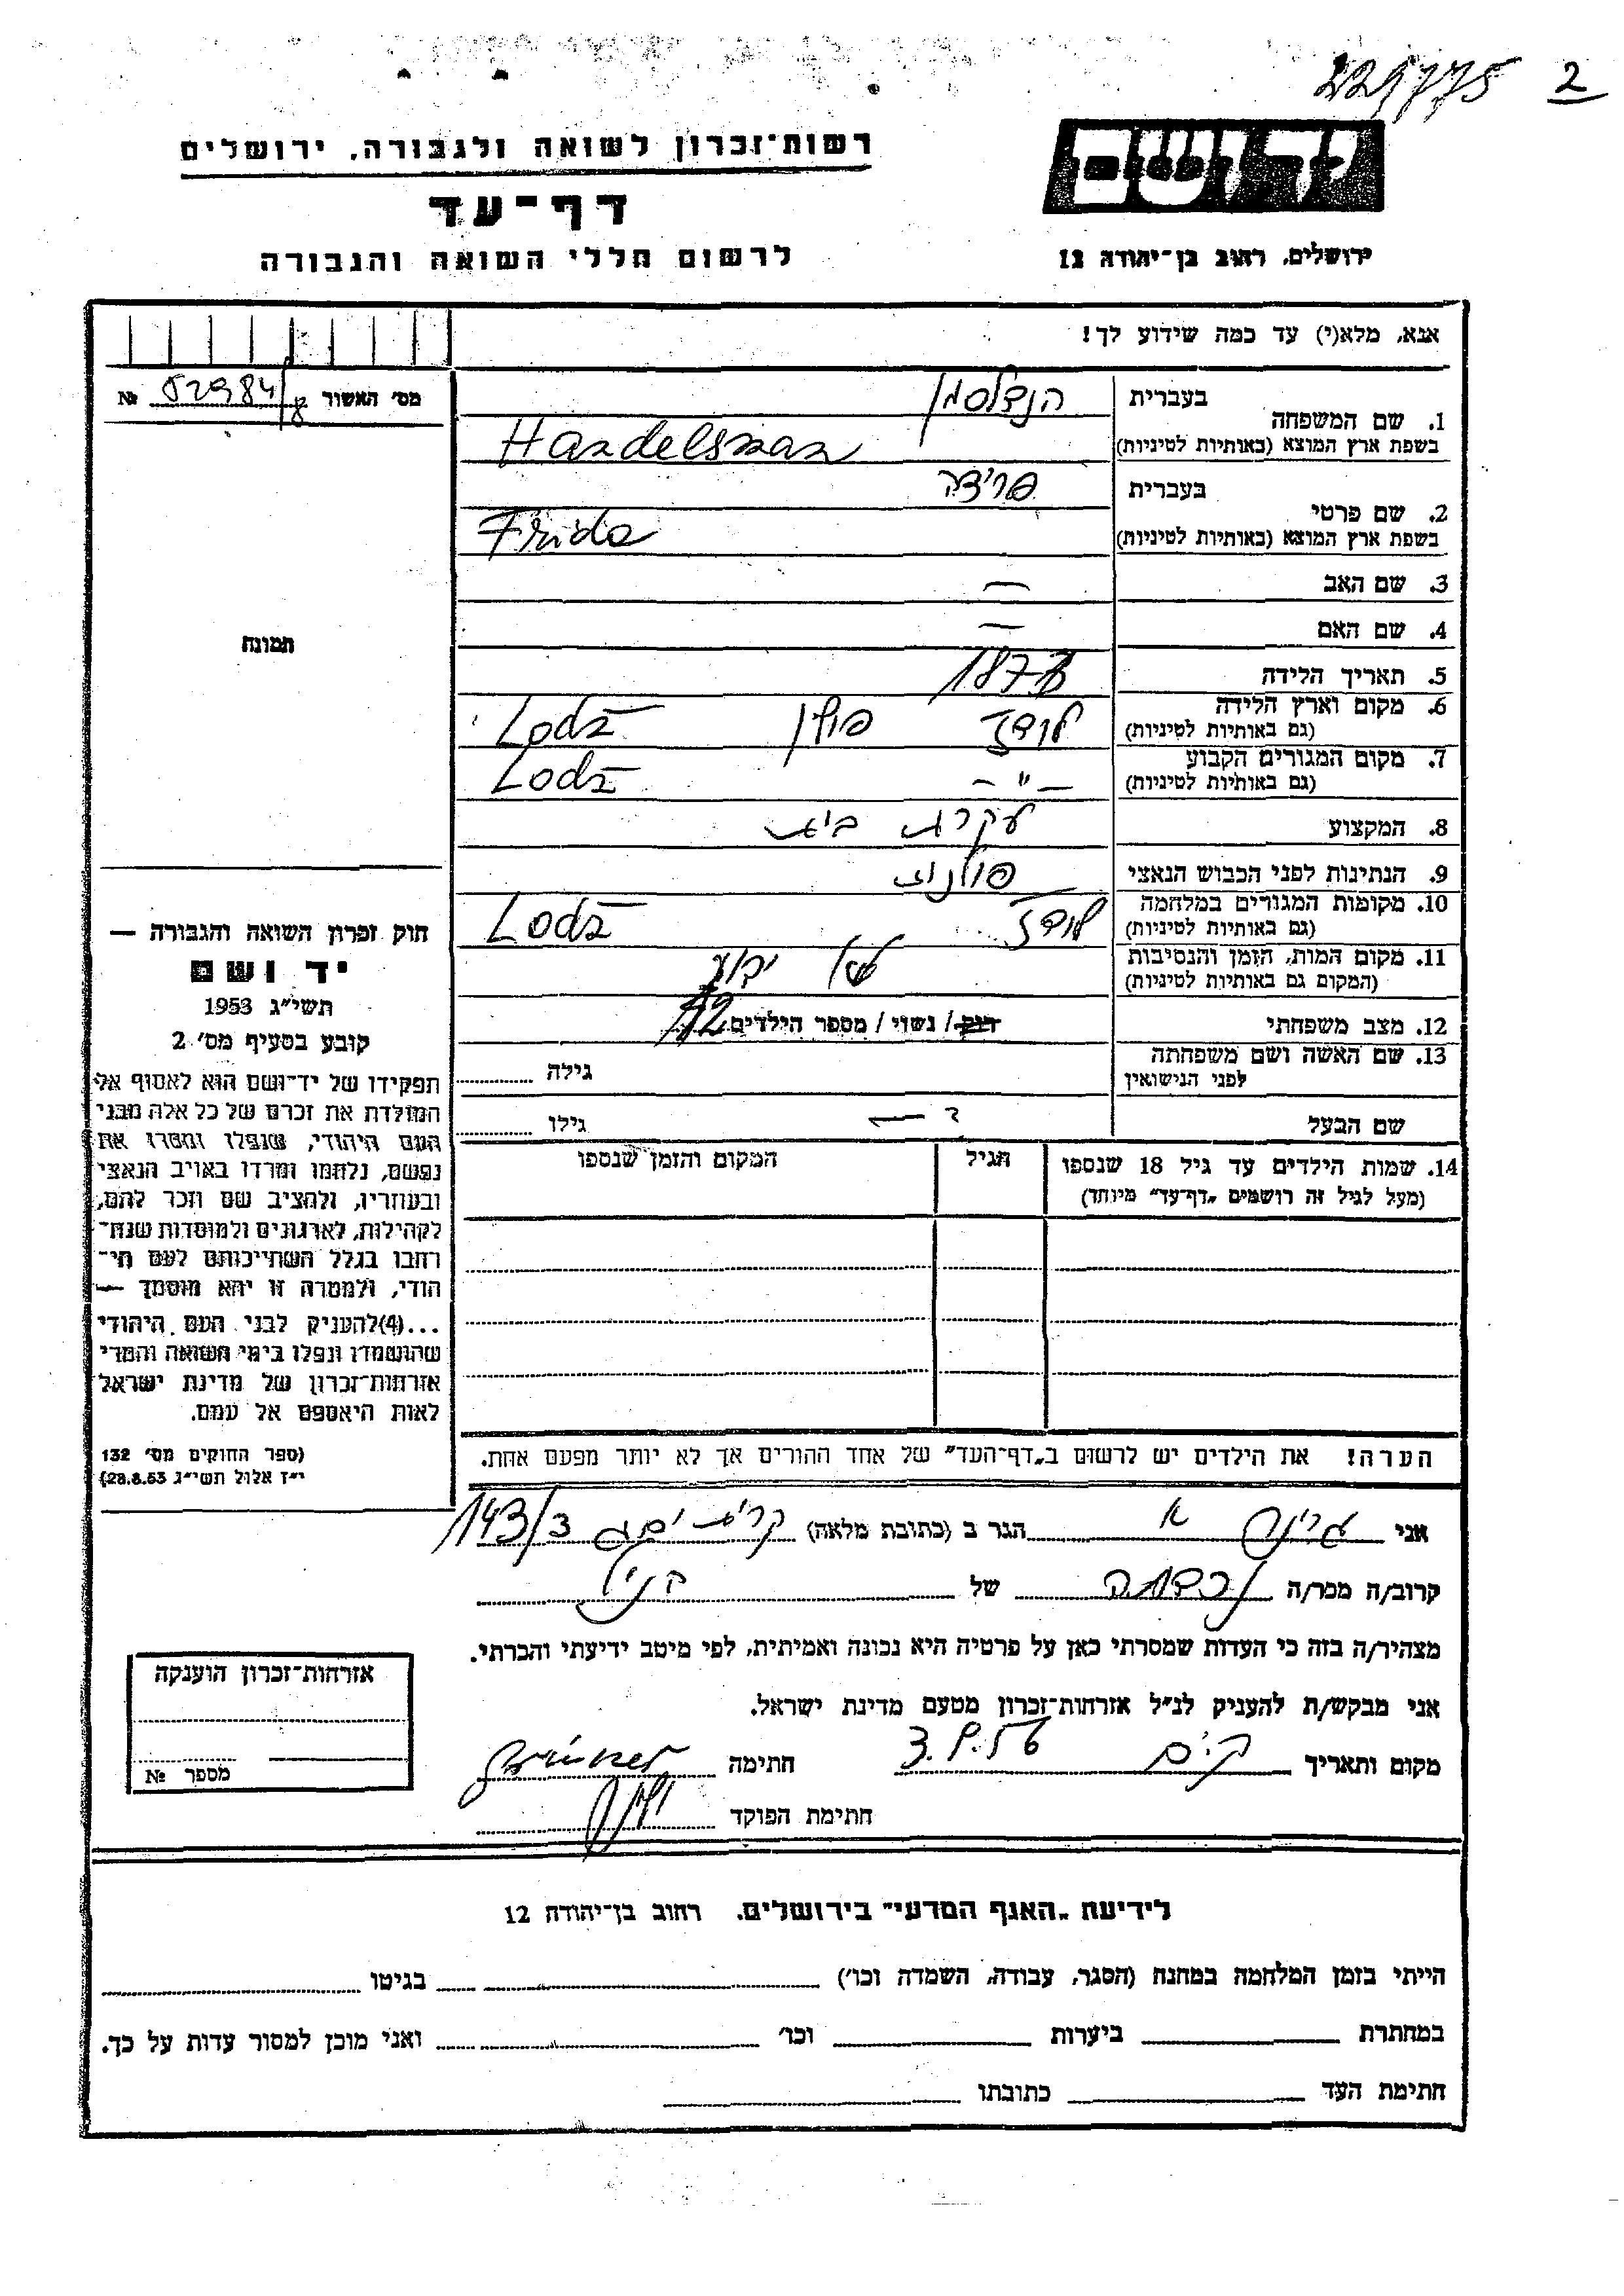 229775 2
רשות־זכרון לשואה ולגבורה, ירושלים
יד ושם
דף־עד
לרשום חללי השואה והגבורה
ירושלים, רחוב בן־יהודה 12
אנא, מלא(י) עד כמה שידוע לך!
מס׳ האשור № 52984/
1. שם המשפחה
בעברית הנדלסמן
בשפת ארץ המוצא (באותיות לטיניות) Handelsman
2. שם פרטי
בעברית פרידה
בשפת ארץ המוצא (באותיות לטיניות) Frida
3. שם האב —
4. שם האם —
5. תאריך הלידה 1873
6. מקום וארץ הלידה (גם באותיות לטיניות) לודז פולין Lodz
7. מקום המגורים הקבוע (גם באותיות לטיניות) —״— Lodz
8. המקצוע עקרת בית
9. הנתינות לפני הכבוש הנאצי פולנית
10. מקומות המגורים במלחמה (גם באותיות לטיניות) לודז Lodz
11. מקום המות, הזמן והנסיבות (המקום גם באותיות לטיניות) לא ידוע
12. מצב משפחתי רווק / נשוי / מספר הילדים 2
13. שם האשה ושם משפחתה לפני הנישואין גילה
שם הבעל — גילו
14. שמות הילדים עד גיל 18 שנספו
(מעל לגיל זה רושמים „דף־עד״ מיוחד)
הגיל
המקום והזמן שנספו
הערה! את הילדים יש לרשום ב„דף־העד״ של אחד ההורים אך לא יותר מפעם אחת.
תמונה
חוק זכרון השואה והגבורה —
יד ושם
תשי״ג 1953
קובע בסעיף מס׳ 2
תפקידו של יד־ושם הוא לאסוף אל
המולדת את זכרם של כל אלה מבני
העם היהודי, שנפלו ומסרו את
נפשם, נלחמו ומרדו באויב הנאצי
ובעוזריו, ולהציב שם וזכר להם,
לקהילות, לארגונים ולמוסדות שנח־
רבו בגלל השתייכותם לעם הי־
הודי, ולמטרה זו יהא מוסמך —
...(4)להעניק לבני העם היהודי
שהושמדו ונפלו בימי השואה והמרי
אזרחות־זכרון של מדינת ישראל
לאות היאספם אל עמם.
(ספר החוקים מס׳ 132
י״ז אלול תשי״ג 28.8.53)
אני גרינר א הגר ב (כתובת מלאה) קרית ים ג 143/3
קרוב/ה מכר/ה נכדתה של הנ״ל
מצהיר/ה בזה כי העדות שמסרתי כאן על פרטיה היא נכונה ואמיתית, לפי מיטב ידיעתי והכרתי.
אני מבקש/ת להעניק לנ״ל אזרחות־זכרון מטעם מדינת ישראל.
מקום ותאריך ק. ים 3.9.56 חתימה
חתימת הפוקד
אזרחות־זכרון הוענקה
מספר №
לידיעת „האגף המדעי״ בירושלים, רחוב בן־יהודה 12
הייתי בזמן המלחמה במחנה (הסגר, עבודה, השמדה וכו׳) בגיטו
במחתרת ביערות וכו׳ ואני מוכן למסור עדות על כך.
חתימת העד כתובתו